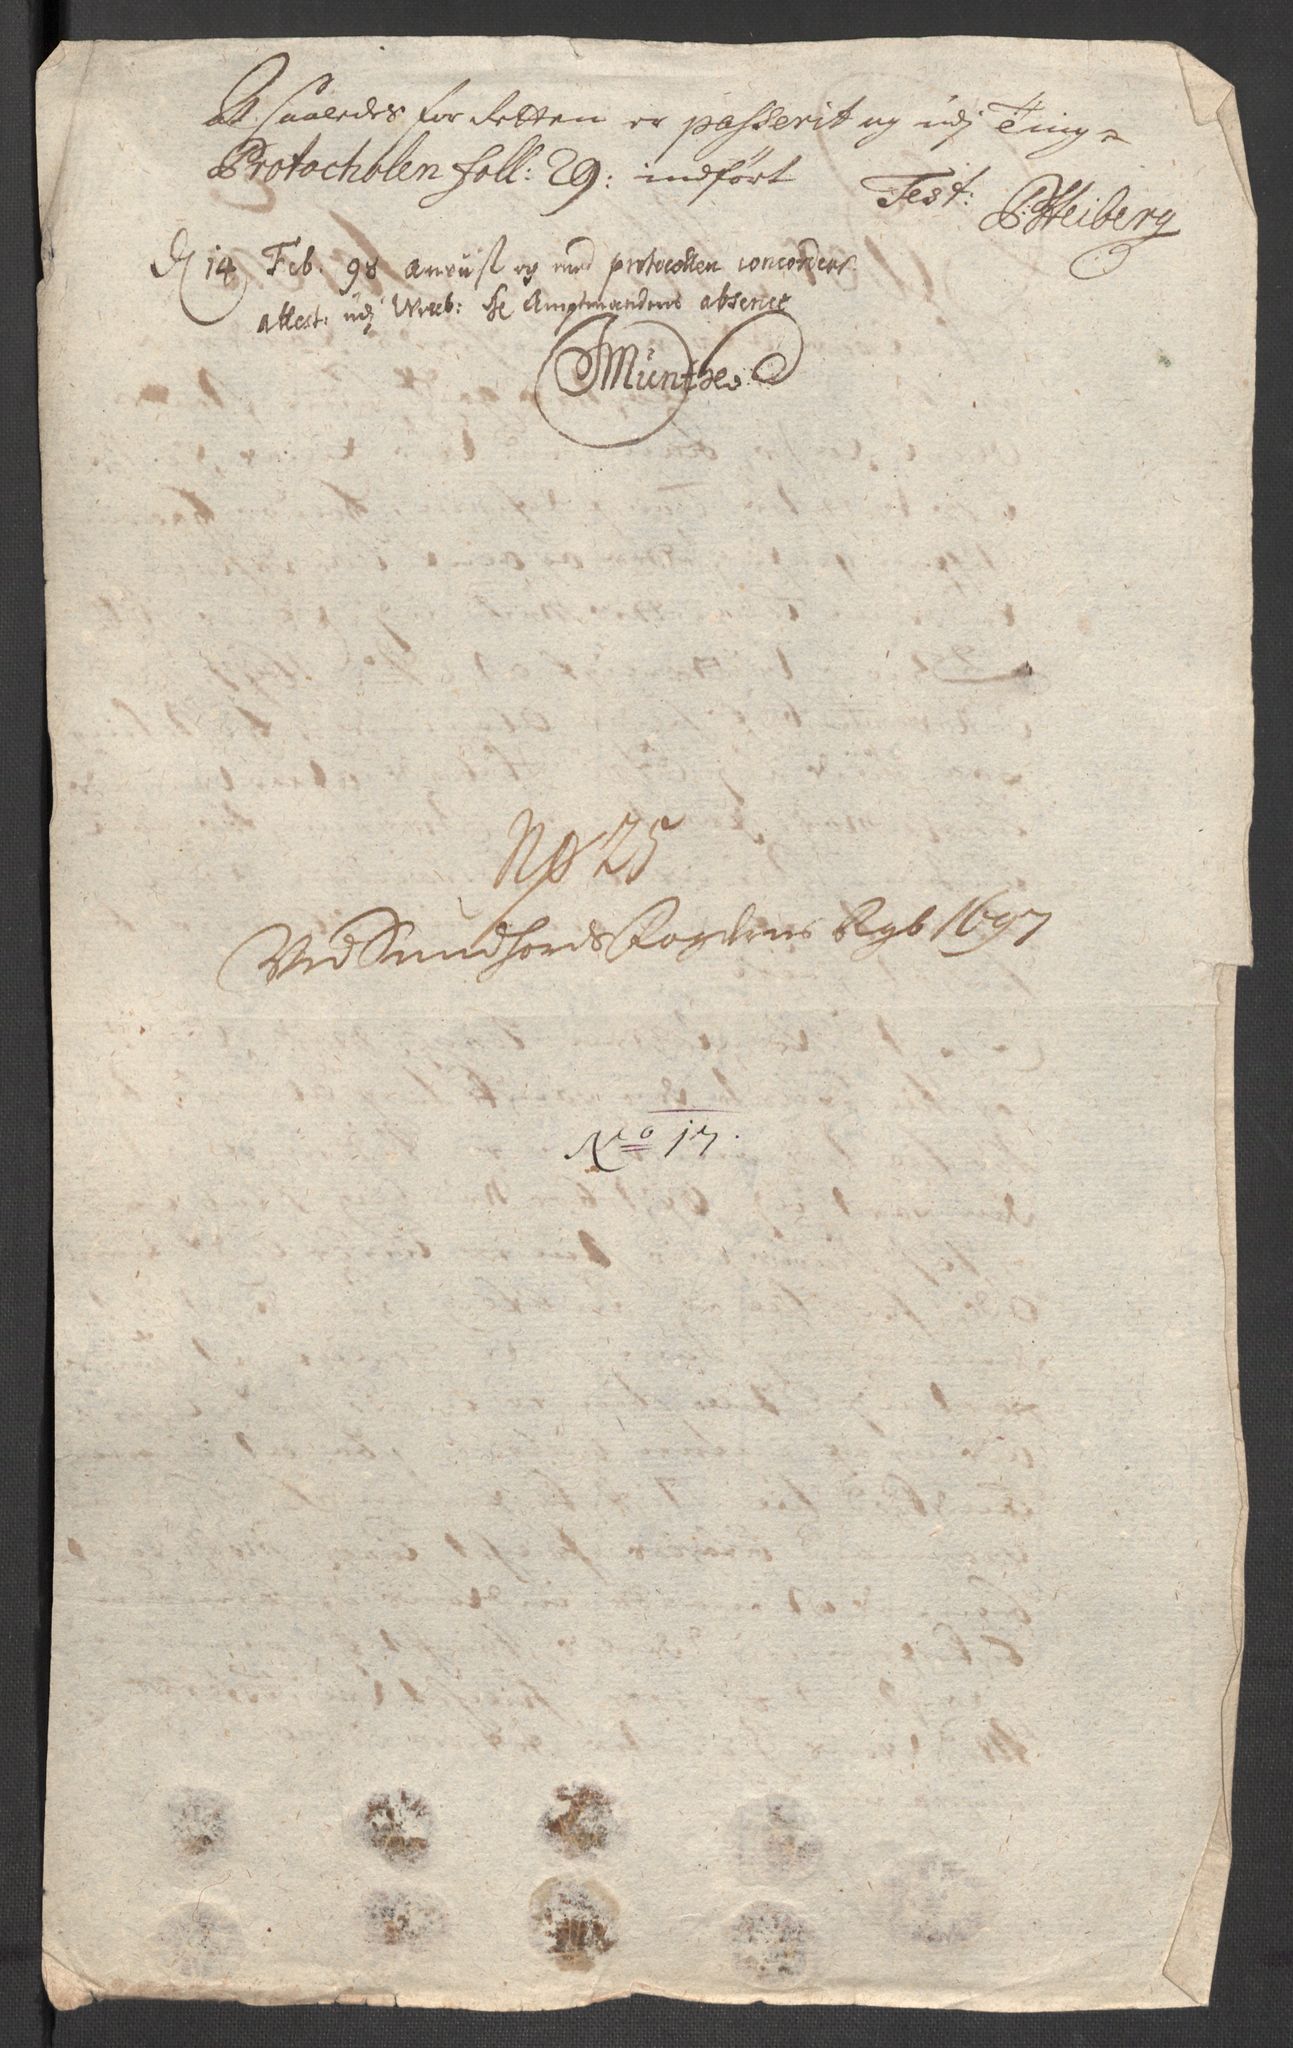 At saaledes for Retten er passerit og udj Ting-
Protocholen foll: 29: indført
Test: P:Heiberg
D 14 Feb. 98 anvist og med protocollen concorderer
attest: udj Welb: Hr Amptmandens absence
JMünthe
No 25
Ved Sundhords Fogderies Rgb 1697
No 17.